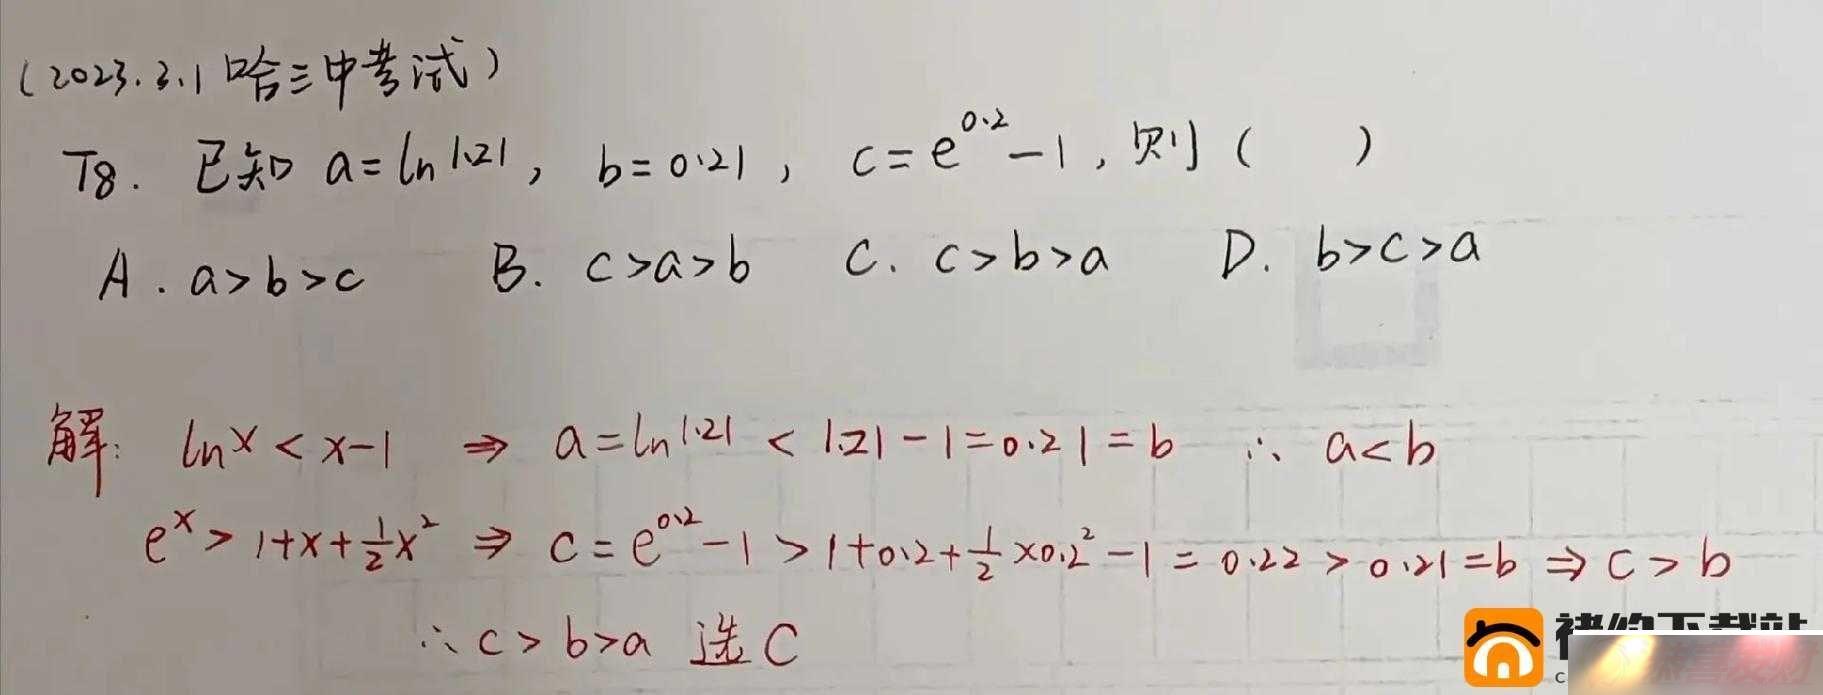 (2023.3.1哈三中考试)
T8. 已知 a=ln1.21, b=0.21, c=e^0.2-1, 则( )
A. a>b>c B. c>a>b C. c>b>a D. b>c>a
解: lnx<x-1 ⇒ a=ln1.21<1.21-1=0.21=b ∴ a<b
e^x>1+x+1/2x² ⇒ c=e^0.2-1>1+0.2+1/2×0.2²-1=0.22>0.21=b ⇒ c>b
∴ c>b>a 选C